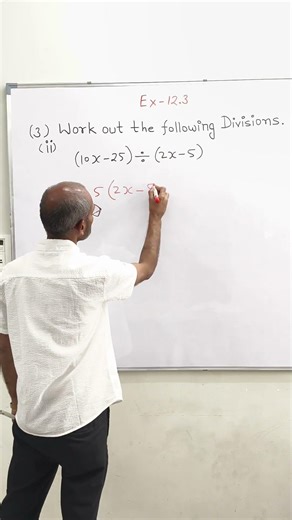 Ex-12.3
(3) Work out the following Divisions.
(ii)
(10x-25) ÷ (2x-5)
5 (2x-